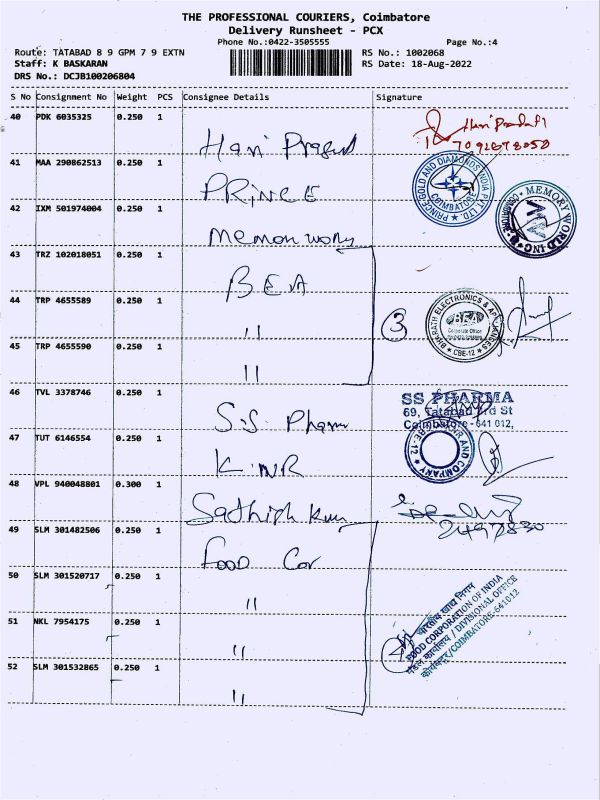 THE PROFESSIONAL COURIERS, Coimbatore
Delivery Runsheet - PCX
Phone No.:0422-3505555
Page No.:4
Route: TATABAD 8 9 GPM 7 9 EXTN
RS No.: 1002068
Staff: K BASKARAN
RS Date: 18-Aug-2022
DRS No.: DCJB100206804
S No Consignment No Weight PCS Consignee Details Signature
40 PDK 6035325 0.250 1
Hari Prasad
Hari Prasad
7092678050
41 MAA 290862513 0.250 1
PRINCE
PRINCE GOLD AND DIAMONDS INDIA PVT. LTD. COIMBATORE
42 IXM 501974004 0.250 1
MEMORY WORLD INC
43 TRZ 102018051 0.250 1
BEA
44 TRP 4655589 0.250 1
"
3
BHARATH ELECTRONICS & APPLIANCES
BEA
Corporate Office
CBE-12
45 TRP 4655590 0.250 1
"
46 TVL 3378746 0.250 1
S.S Pharm
SS PHARMA
69, Tatabad 3rd St
Coimbatore - 641 012,
47 TUT 6146554 0.250 1
K.NR
AND COMPANY
CBE-12
48 VPL 940048801 0.300 1
Sathish Kum
49 SLM 301482506 0.250 1
Food Cor
50 SLM 301520717 0.250 1
"
51 NKL 7954175 0.250 1
"
4
भारतीय खाद्य निगम
FOOD CORPORATION OF INDIA
मंडल कार्यालय / DIVISIONAL OFFICE
कोयंबत्तूर/COIMBATORE-641012
52 SLM 301532865 0.250 1
"